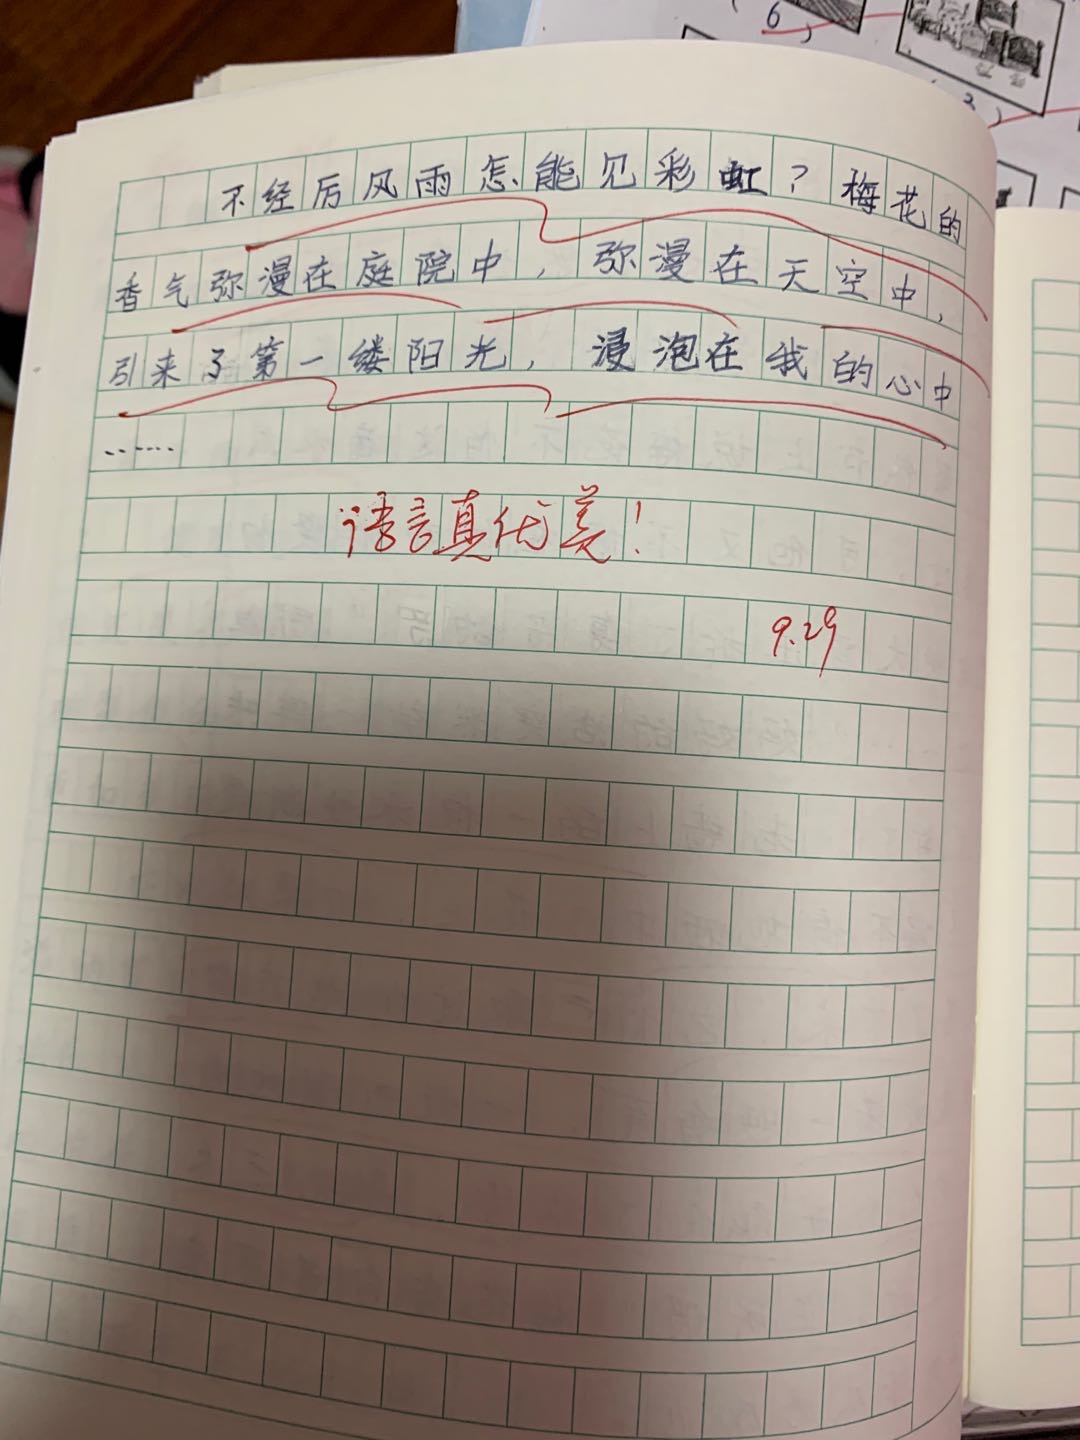 6
3
不经厉风雨怎能见彩虹？梅花的
香气弥漫在庭院中，弥漫在天空中，
引来了第一缕阳光，浸泡在我的心中
……
语言真优美！
9.29